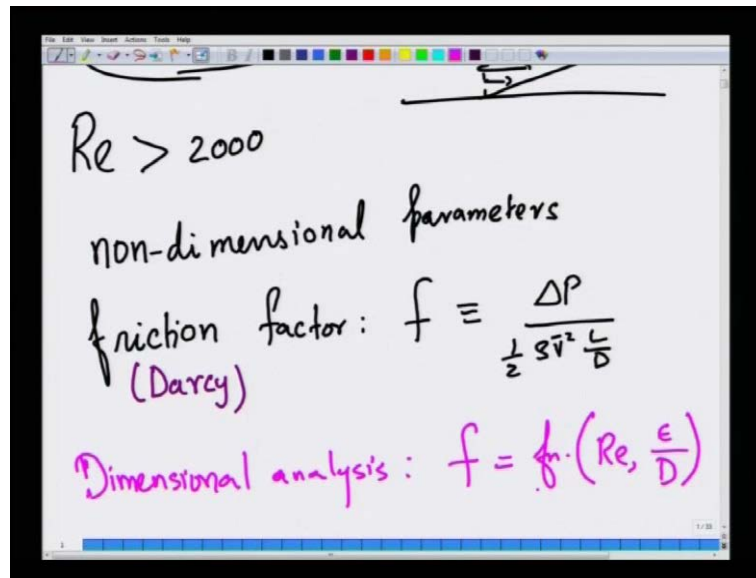 File Edit View Insert Actions Tools Help
Re > 2000
non-dimensional parameters
friction factor: f ≡ ΔP / (1/2 ρV̄² L/D)
(Darcy)
Dimensional analysis: f = fn.(Re, ε/D)
1/33
1